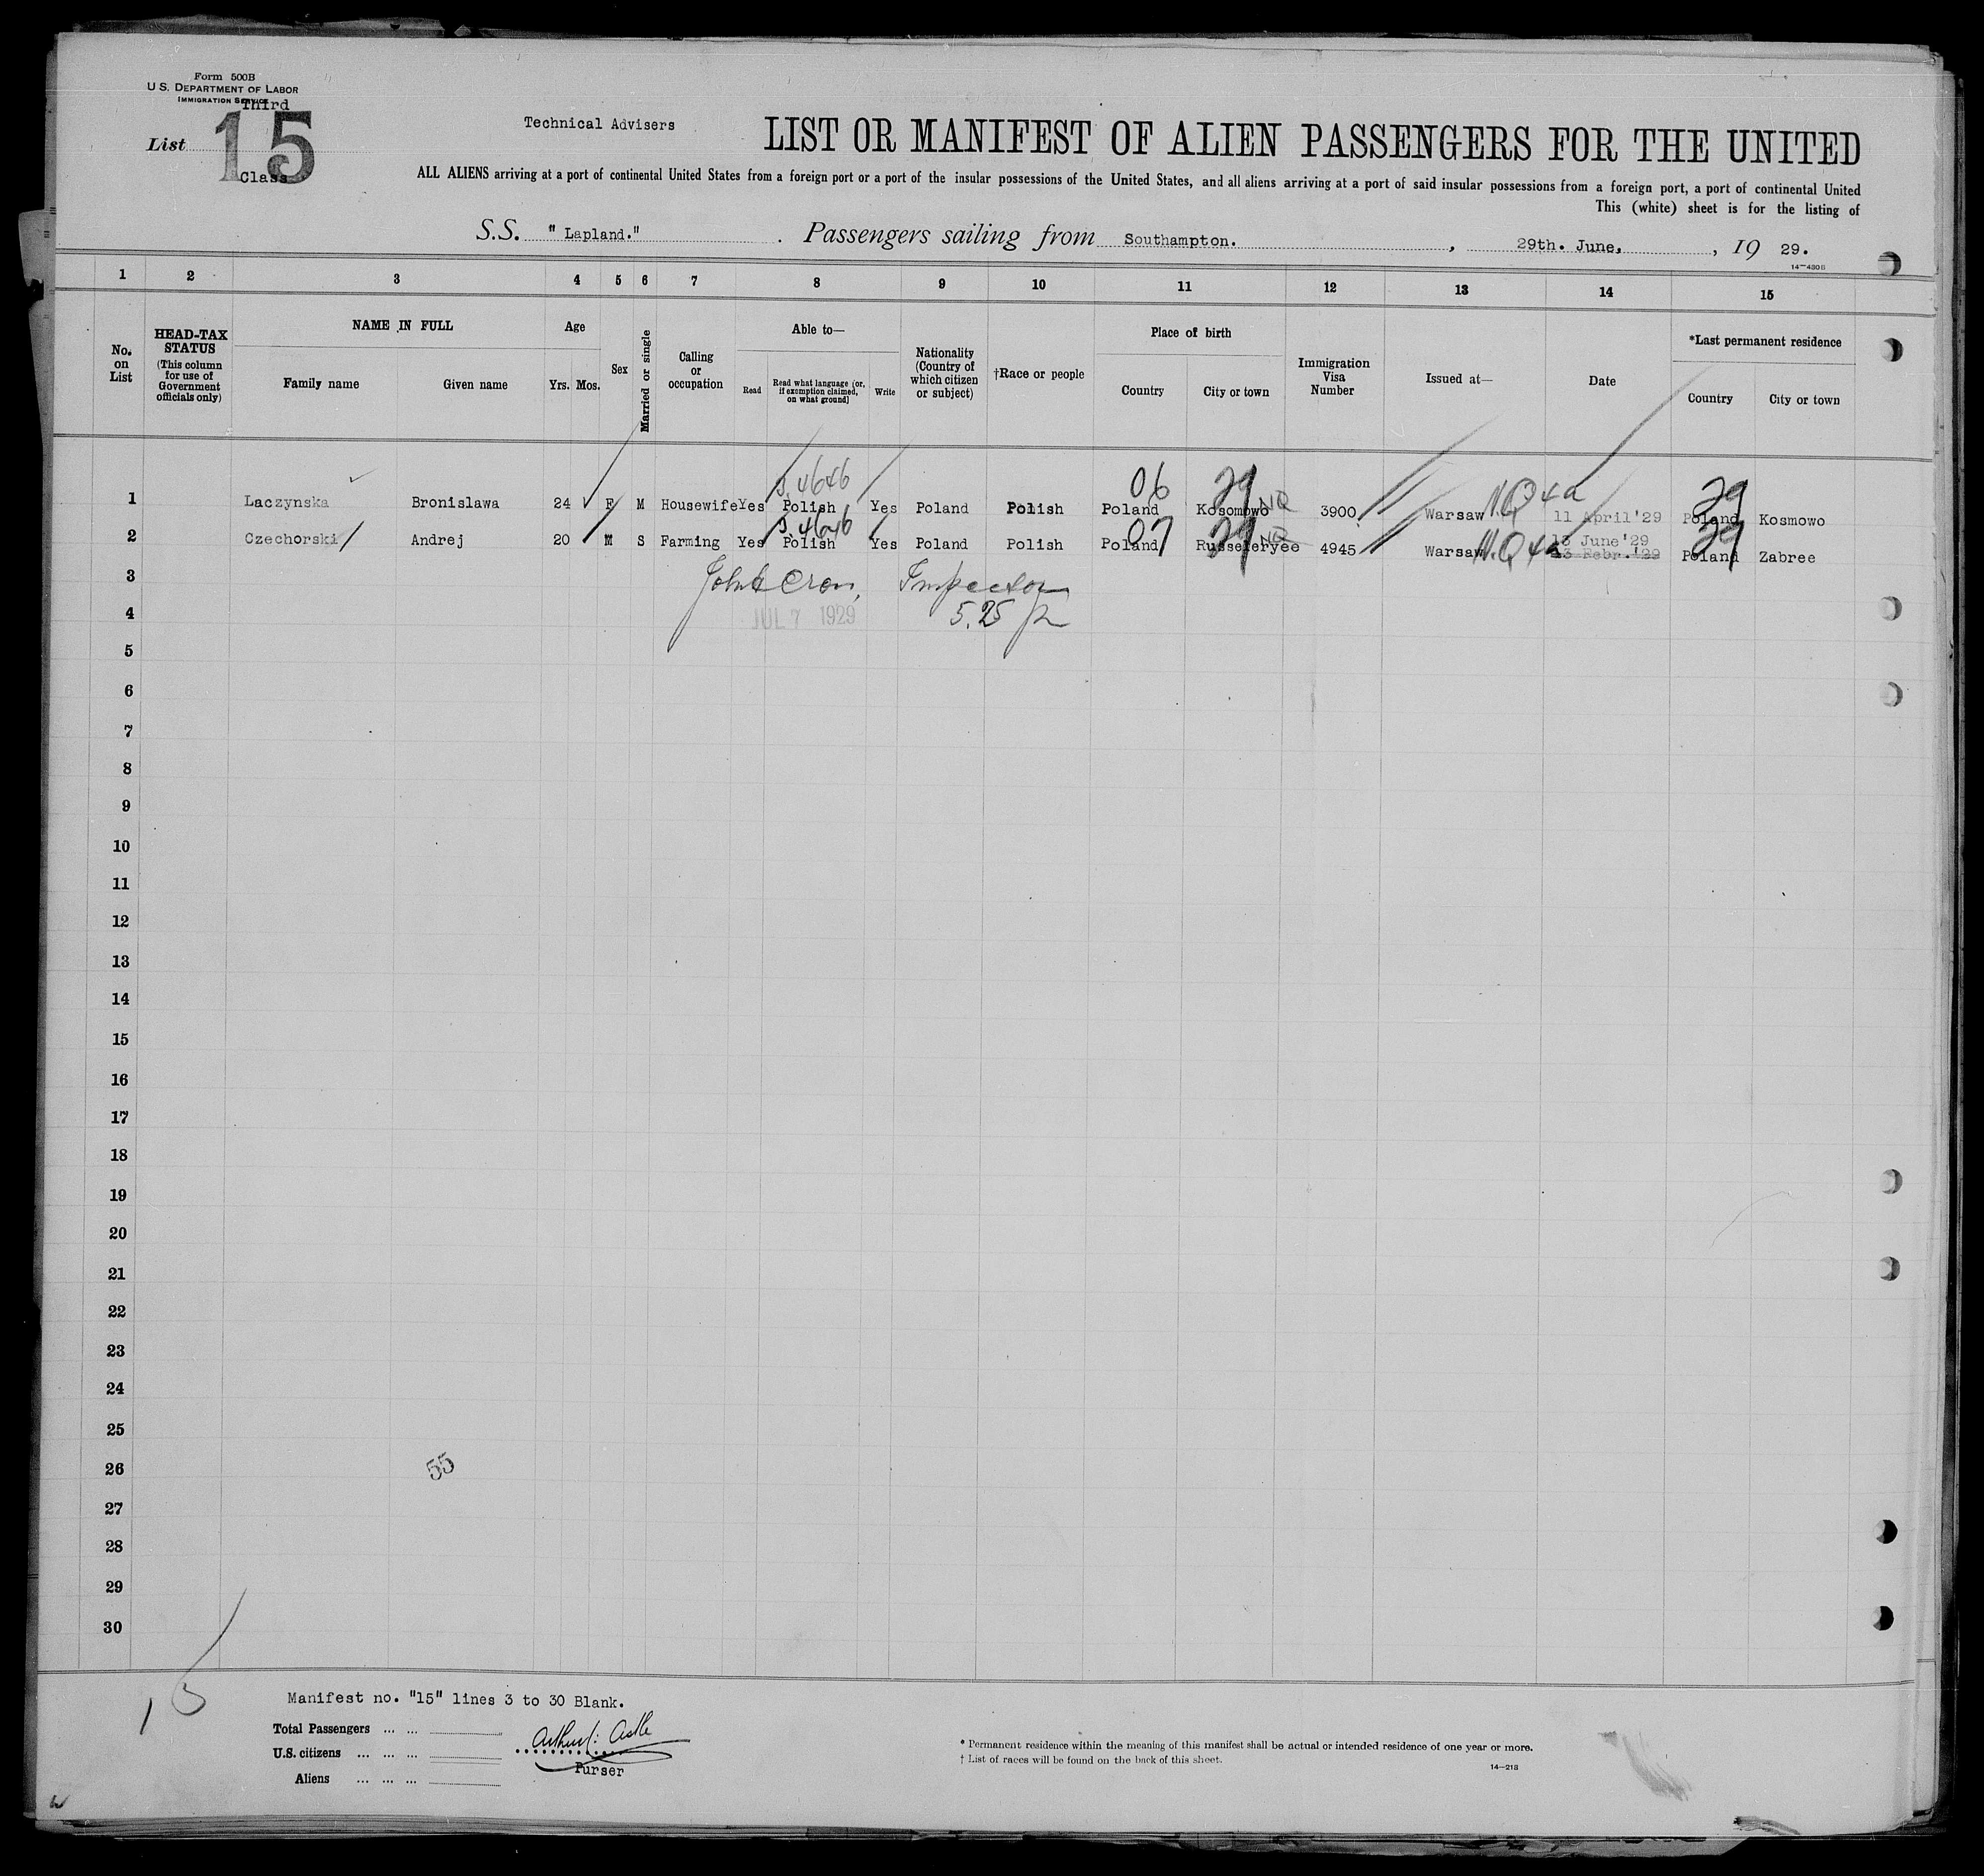 Form 500B
U.S. DEPARTMENT OF LABOR
IMMIGRATION SERVICE
Third
List 15
Class
Technical Advisers
LIST OR MANIFEST OF ALIEN PASSENGERS FOR THE UNITED
ALL ALIENS arriving at a port of continental United States from a foreign port or a port of the insular possessions of the United States, and all aliens arriving at a port of said insular possessions from a foreign port, a port of continental United
This (white) sheet is for the listing of
S.S. "Lapland." Passengers sailing from Southampton. , 29th. June, , 19 29.
14-430B
1 2 3 4 5 6 7 8 9 10 11 12 13 14 15
No. on List
HEAD-TAX STATUS (This column for use of Government officials only)
NAME IN FULL
Family name Given name
Age
Yrs. Mos.
Sex
Married or single
Calling or occupation
Able to—
Read Read what language (or, if exemption claimed, on what ground) Write
Nationality (Country of which citizen or subject)
†Race or people
Place of birth
Country City or town
Immigration Visa Number
Issued at—
Date
*Last permanent residence
Country City or town
06 29 N.Q 4a 29
1 Laczynska Bronislawa 24 F M Housewife Yes Polish Yes Poland Polish Poland Kosomowo NQ 3900. Warsaw 11 April'29 Poland Kosmowo
07 29 N.Q 4a 29
13 June'29
2 Czechorski Andrej 20 M S Farming Yes Polish Yes Poland Polish Poland NQ 4945 Warsaw 13 Febr.'29 Poland Zabree
3 Inspector
4 JUL 7 1929 5.25
5
6
7
8
9
10
11
12
13
14
15
16
17
18
19
20
21
22
23
24
25
26 55
27
28
29
30
15
Manifest no. "15" lines 3 to 30 Blank.
Total Passengers ... ...
U.S. citizens ... ... ...
Aliens ... ... ...
Purser
* Permanent residence within the meaning of this manifest shall be actual or intended residence of one year or more.
† List of races will be found on the back of this sheet.
14-213